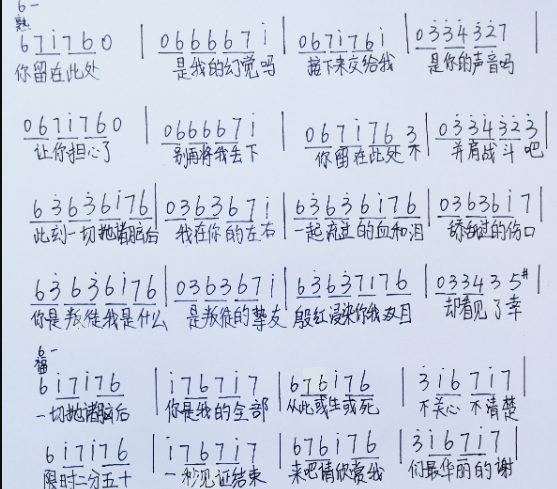 6一
熟
671̇760 | 066671̇ | 0671̇761̇ | 03̇3̇4̇3̇2̇7 |
你留在此处 是我的幻觉吗 接下来交给我 是你的声音吗
0671̇760 | 0666671̇ | 0671̇763̇ | 03̇3̇4̇3̇2̇3̇ |
让你担心了 别再将我丢下 你留在此处不 并肩战斗吧
63̇63̇61̇76 | 0363671̇ | 63̇63̇61̇76 | 036361̇7 |
此刻一切抛诸脑后 我在你的左右 一起流过的血和泪 舔舐过的伤口
63̇63̇61̇76 | 0363671̇ | 63̇63̇71̇76 | 033435# |
你是叛徒我是什么 是叛徒的挚友 殷红浸染你我双目 却看见了幸
6一
福
61̇71̇76 | 1̇7671̇7 | 6761̇76 | 3̇1̇671̇7 |
一切抛诸脑后 你是我的全部 从此或生或死 不关心 不清楚
61̇71̇76 | 1̇7671̇7 | 6761̇76 | 3̇1̇671̇7 |
限时二分五十 一秒见证结束 来吧请欣赏我 们最华丽的谢